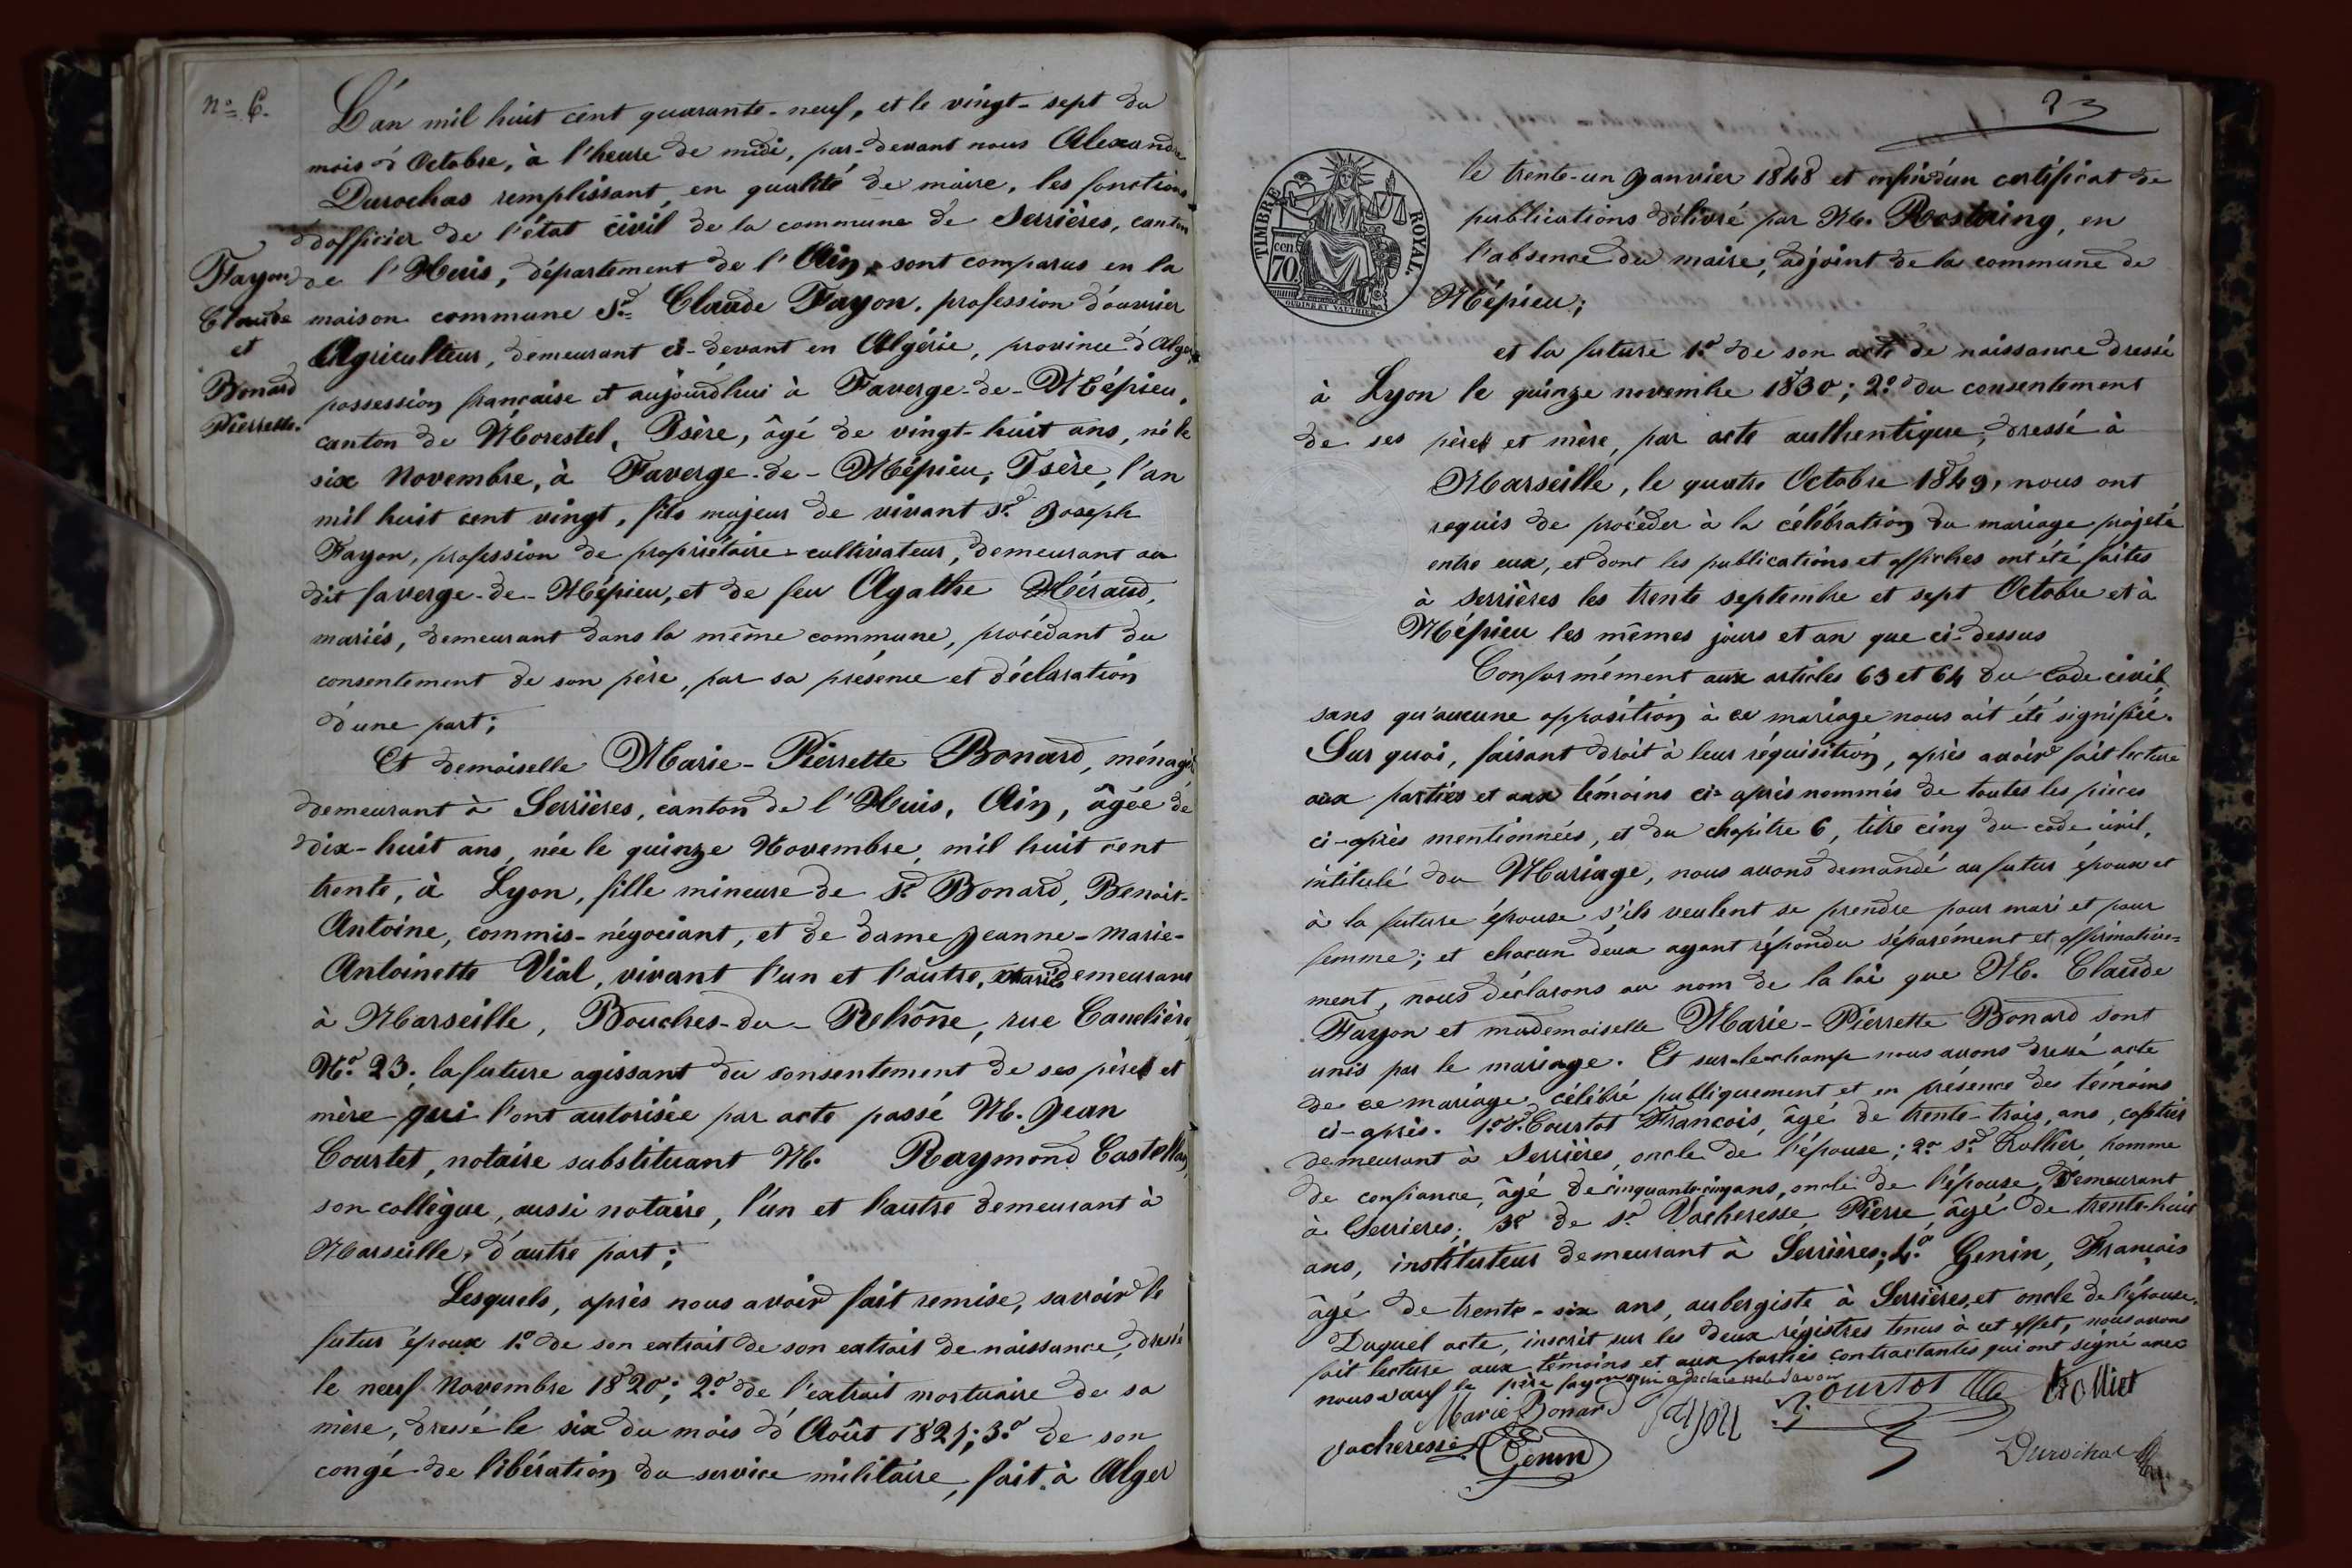 N.o 6.
L'an mil huit cent quarante-neuf, et le vingt-sept du
mois d'Octobre, à l'heure de midi, par-devant nous Alexandre
Durochas remplissant, en qualité de maire, les fonctions
d'officier de l'état civil de la commune de Serrières, canton
de l'Huis, département de l'Ain, sont comparus en la
maison commune Sr. Claude Fayon, profession d'ouvrier
Agriculteur, demeurant ci-devant en Algérie, province d'Alger,
possession française et aujourd'hui à Faverge-de-Mépieu,
canton de Morestel, Isère, âgé de vingt-huit ans, né le
six Novembre, à Faverge-de-Mépieu, Isère, l'an
mil huit cent vingt, fils majeur de vivant Sr. Joseph
Fayon, profession de propriétaire-cultivateur, demeurant au
dit faverge-de-Mépieu, et de feu Agathe Héraud,
mariés, demeurant dans la même commune, procédant du
consentement de son père, par sa présence et déclaration
d'une part;
Et demoiselle Marie-Pierrette Bonard, ménagère
demeurant à Serrières, canton de l'Huis, Ain, âgée de
dix-huit ans, née le quinze Novembre, mil huit cent
trente, à Lyon, fille mineure de Sr. Bonard, Benoit-
Antoine, commis-négociant, et de dame Jeanne-Marie-
Antoinette Vial, vivant l'un et l'autre, mariés demeurant
à Marseille, Bouches-du-Rhône, rue Canelière
No. 23. la future agissant du consentement de ses père et
mère qui l'ont autorisée par acte passé M. Jean
Courtet, notaire substituant M. Raymond Castellan,
son collègue, aussi notaire, l'un et l'autre demeurant à
Marseille, d'autre part;
Lesquels, après nous avoir fait remise, savoir le
futur époux 1.o de son extrait de son extrait de naissance, dressé
le neuf Novembre 1820; 2.o de l'extrait mortuaire de sa
mère, dressé le six du mois d'Août 1821; 3.o de son
congé de libération du service militaire, fait à Alger
Fayon
Claude
et
Bonard
Pierrette.
23
TIMBRE ROYAL.
70 cen
le trente-un Janvier 1848 et enfin d'un certificat de
publications délivré par M. Rostaing, en
l'absence du maire, adjoint de la commune de
Mépieu;
et la future 1.o de son acte de naissance dressé
à Lyon le quinze novembre 1830; 2.o du consentement
de ses père et mère, par acte authentique, dressé à
Marseille, le quatre Octobre 1849, nous ont
requis de procéder à la célébration du mariage projeté
entre eux, et dont les publications et affiches ont été faites
à Serrières les trente septembre et sept Octobre et à
Mépieu les mêmes jours et an que ci-dessus
Conformément aux articles 63 et 64 du code civil,
sans qu'aucune opposition à ce mariage nous ait été signifiée.
Sur quoi, faisant droit à leur réquisition, après avoir fait lecture
aux parties et aux témoins ci-après nommés de toutes les pièces
ci-après mentionnées, et du chapitre 6, titre cinq du code civil,
intitulé du Mariage, nous avons demandé au futur époux et
à la future épouse s'ils veulent se prendre pour mari et pour
femme; et chacun d'eux ayant répondu séparément et affirmative-
ment, nous déclarons au nom de la loi que M. Claude
Fayon et mademoiselle Marie-Pierrette Bonard sont
unis par le mariage. Et sur-le-champ nous avons dressé acte
de ce mariage célébré publiquement et en présence des témoins
ci-après. 1.o Sr. Courtot Francois, âgé de trente-trois ans,
demeurant à Serrières, oncle de l'épouse; 2.o Sr. Trolliet, homme
de confiance, âgé de cinquante-cinq ans, oncle de l'épouse, demeurant
à Serrières; 3.o de Sr. Vacheresse, Pierre, âgé de trente-huit
ans, instituteur demeurant à Serrières; 4.o Genin, François
âgé de trente-six ans, aubergiste à Serrières, et oncle de l'épouse.
Duquel acte, inscrit sur les deux régistres tenus à cet effet, nous avons
fait lecture aux témoins et aux parties contractantes qui ont signé avec
nous sauf le père fayon qui a déclaré
Marie Bonard Fayon Courtot Trolliet
Vacheresse Genin Durochat